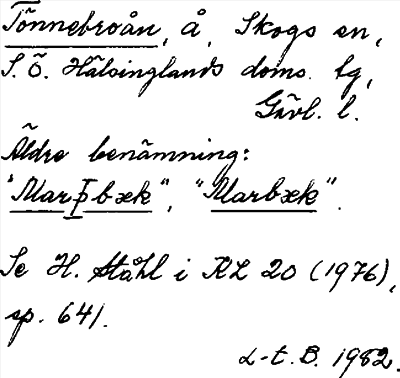 Tönnebroån, å, Skogs sn,
S. Ö. Hälsinglands doms. tg,
Gävl. l.
Äldre benämning:
"Marþbæk", "Marbæk".
Se H. Ståhl i KL 20 (1976),
sp. 641.
L-t. B. 1982.